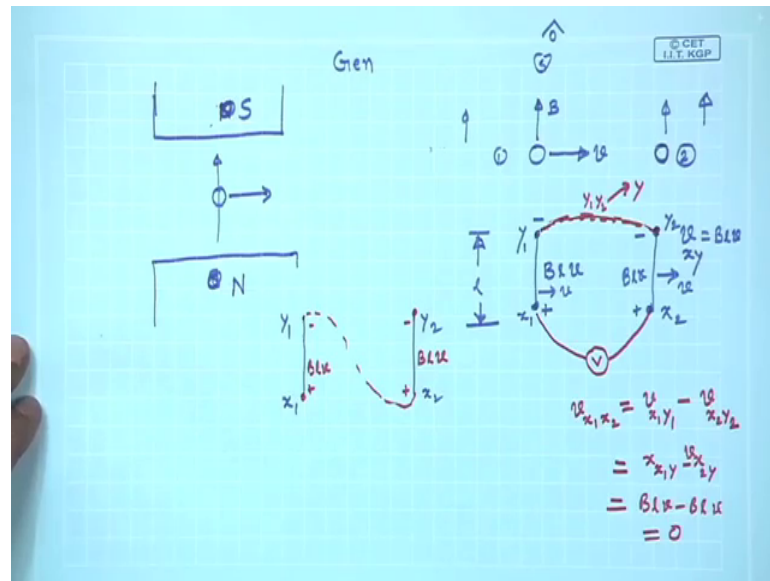 Gen
© CET
I.I.T. KGP
S
N
B
① v
②
Y₁ Y₂ Y
Y₁ - - Y₂ v = Blv
xy
l
Blv Blv
v v
x₁ + + x₂
V
Y₁ - - Y₂
Blv Blv
x₁ + + x₂
v x₁x₂ = v x₁Y₁ - v x₂Y₂
= x x₁Y - v x₂Y
= Blv - Blv
= 0